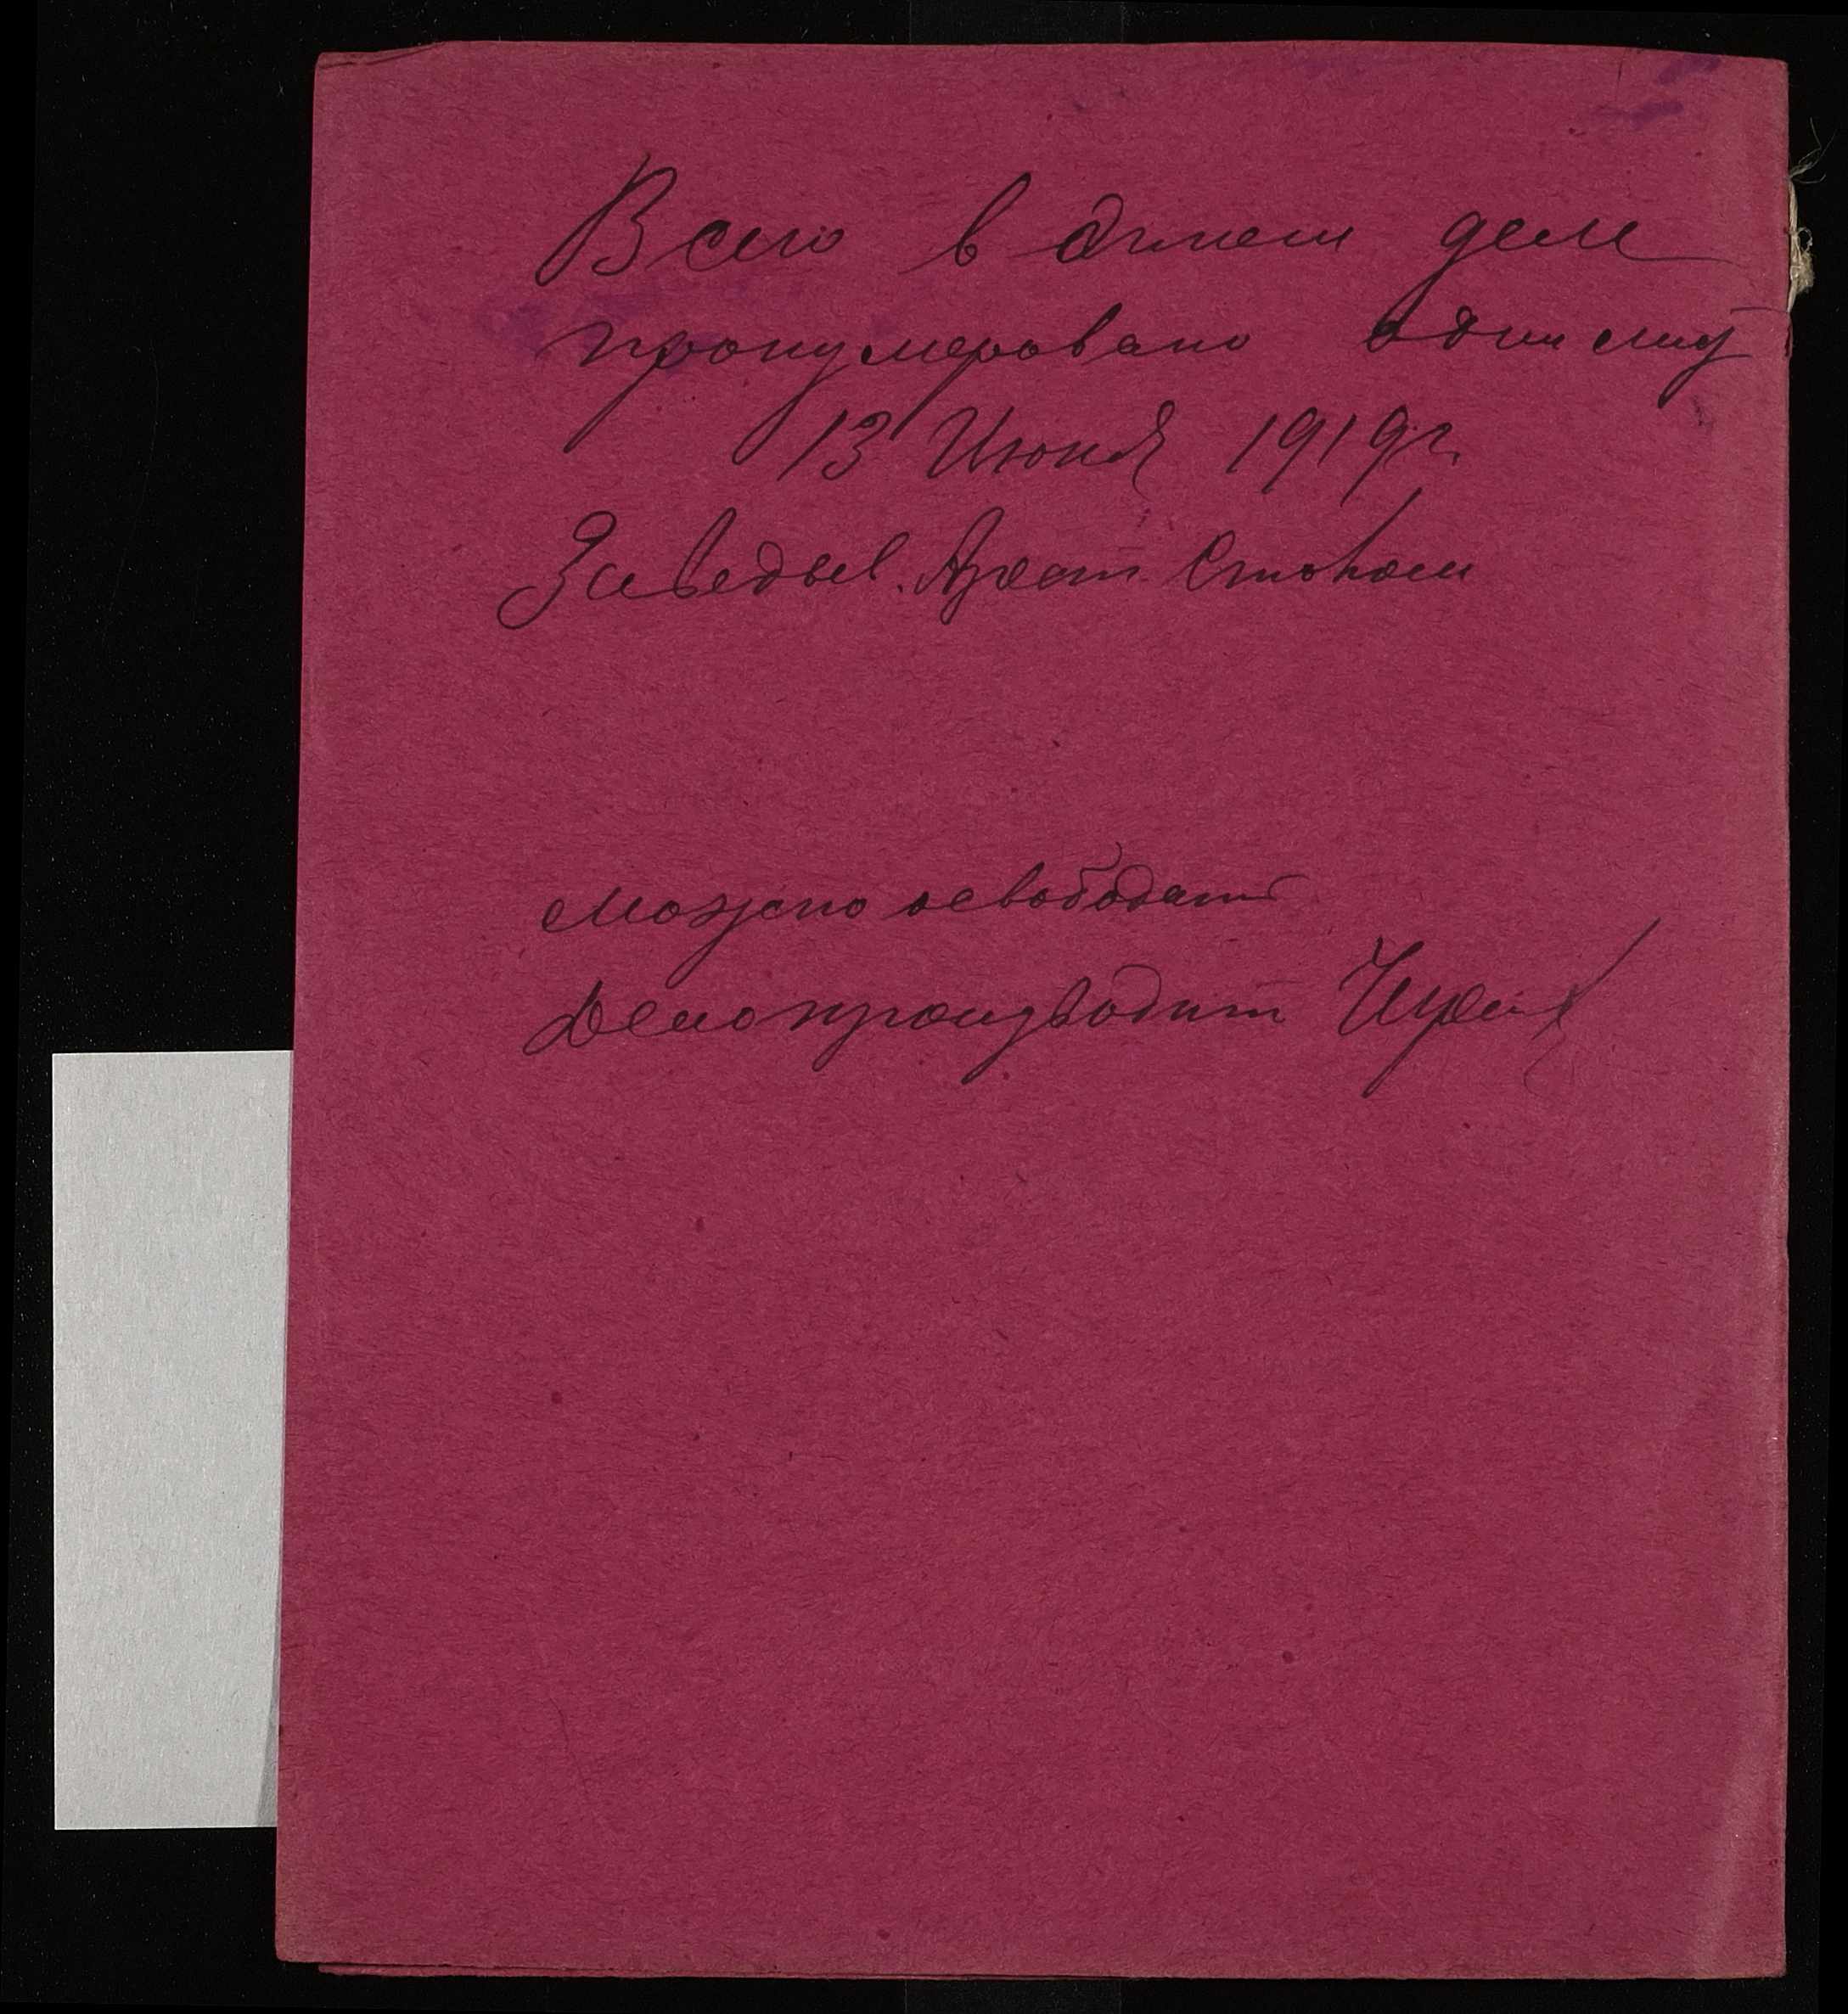 Всего в этом деле
пронумеровано один лист
13 Июня 1919 г.
Заведыв. Арест. Столом
Можно освободить
Делопроизводит